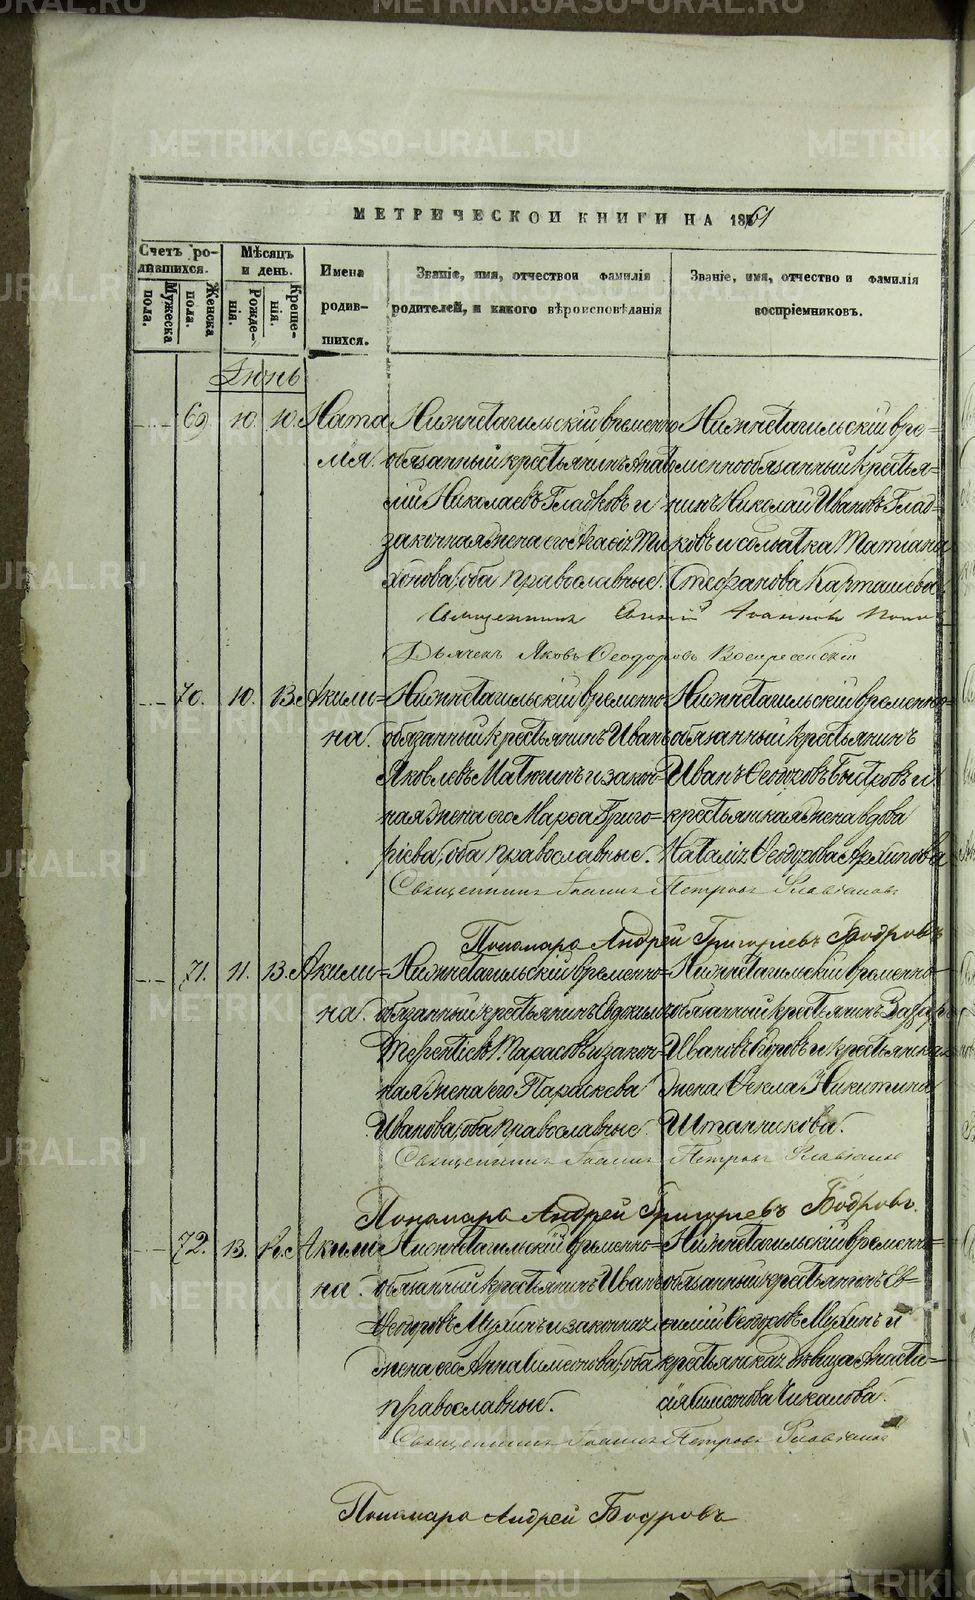 METRIKI.GASO-URAL.RU
МЕТРИЧЕСКОЙ КНИГИ НА 1861
Счетъ ро-
дившихся.
Мужеска пола.
Женска пола.
Мѣсяцъ и день.
Рожде-
нія.
Креще-
нія.
Имена родив-
шихся.
Званіе, имя, отчество и фамилія
родителей, и какого вѣроисповѣданія
Званіе, имя, отчество и фамилія
воспріемниковъ.
Іюнь
69. 10. 10. Ната
лія.
Нижнетагильскій временно
обязанный крестьянинъ
Николаевъ Гладковъ и
законная жена его Ти
хонова, оба православные.
Нижнетагильскій вре-
меннообязанный крестья-
нинъ Николай Ивановъ Глад-
ковъ и солдатка Татіана
Стефанова Карташева
Священникъ Іоанновъ
Дьячекъ Яковъ Ѳеодоровъ Воскресенскій
70. 10. 13. Акили-
на.
Нижнетагильскій временно
обязанный крестьянинъ Иванъ
Яковлевъ Матюгинъ и закон-
ная жена его Марѳа Григо-
рьева, оба православные.
Нижнетагильскій временно-
обязанный крестьянинъ
Иванъ Ѳедоровъ Быдровъ и
крестьянская жена вдова
Наталія Ѳеодорова Архипова
Священникъ Іоаннъ Петровъ Славниновъ
Пономарь Андрей Григорьевъ Бодровъ
71. 11. 13. Акили-
на.
Нижнетагильскій временно-
обязанный крестьянинъ Евдокимъ
Терентіевъ Тарасовъ и закон-
ная жена его Параскева
Иванова, оба православные.
Нижнетагильскій временно-
обязанный крестьянинъ Захаръ
Ивановъ и крестьянская
жена Ѳекла Никитина
Штанчикова.
Священникъ Іоаннъ Петровъ
Пономарь Андрей Григорьевъ Бодровъ.
72. 13. Акили
на.
Нижнетагильскій временно-
обязанный крестьянинъ Иванъ
Ѳедоровъ Мухинъ и законная
жена его Анна Симеонова, оба
православные.
Нижнетагильскій временно-
обязанный крестьянинъ Ев-
Ѳедоровъ Мухинъ и
крестьянская дѣвица Анаста-
сія Симеонова Чикалова.
Священникъ Іоаннъ Петровъ
Пономарь Андрей Бодровъ
METRIKI.GASO-URAL.RU